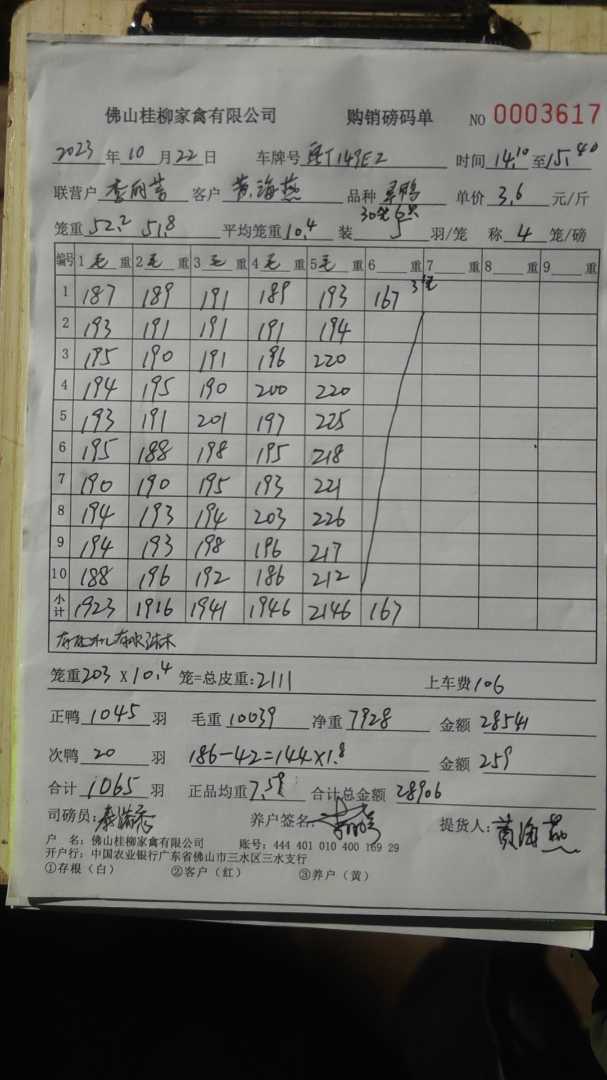 佛山桂柳家禽有限公司 购销磅码单 NO 0003617
2023 年 10 月 22 日 车牌号 149E2 时间 14:10 至 15:40
联营户 客户 黄海燕 品种 鸭 单价 3.6 元/斤
笼重 52.2 51.8 平均笼重 10.4 装 30笼6只 5 羽/笼 称 4 笼/磅
编号 1 毛 重 2 毛 重 3 毛 重 4 毛 重 5 毛 重 6 重 7 重 8 重 9 重
1 187 189 191 189 193 167 3笼
2 193 191 191 191 194
3 195 190 191 196 220
4 194 195 190 200 220
5 193 191 201 197 225
6 195 188 198 195 218
7 190 190 195 193 221
8 194 193 194 203 226
9 194 193 198 196 217
10 188 196 192 186 212
小计 1923 1916 1941 1946 2146 167
笼重 203 X 10.4 笼=总皮重: 2111 上车费 106
正鸭 1045 羽 毛重 10039 净重 7928 金额 28541
次鸭 20 羽 186-42=144X1.8 金额 259
合计 1065 羽 正品均重 7.59 合计总金额 28906
司磅员: 养户签名: 提货人: 黄海燕
户 名: 佛山桂柳家禽有限公司 账号: 444 401 010 400 169 29
开户行: 中国农业银行广东省佛山市三水区三水支行
①存根（白） ②客户（红） ③养户（黄）